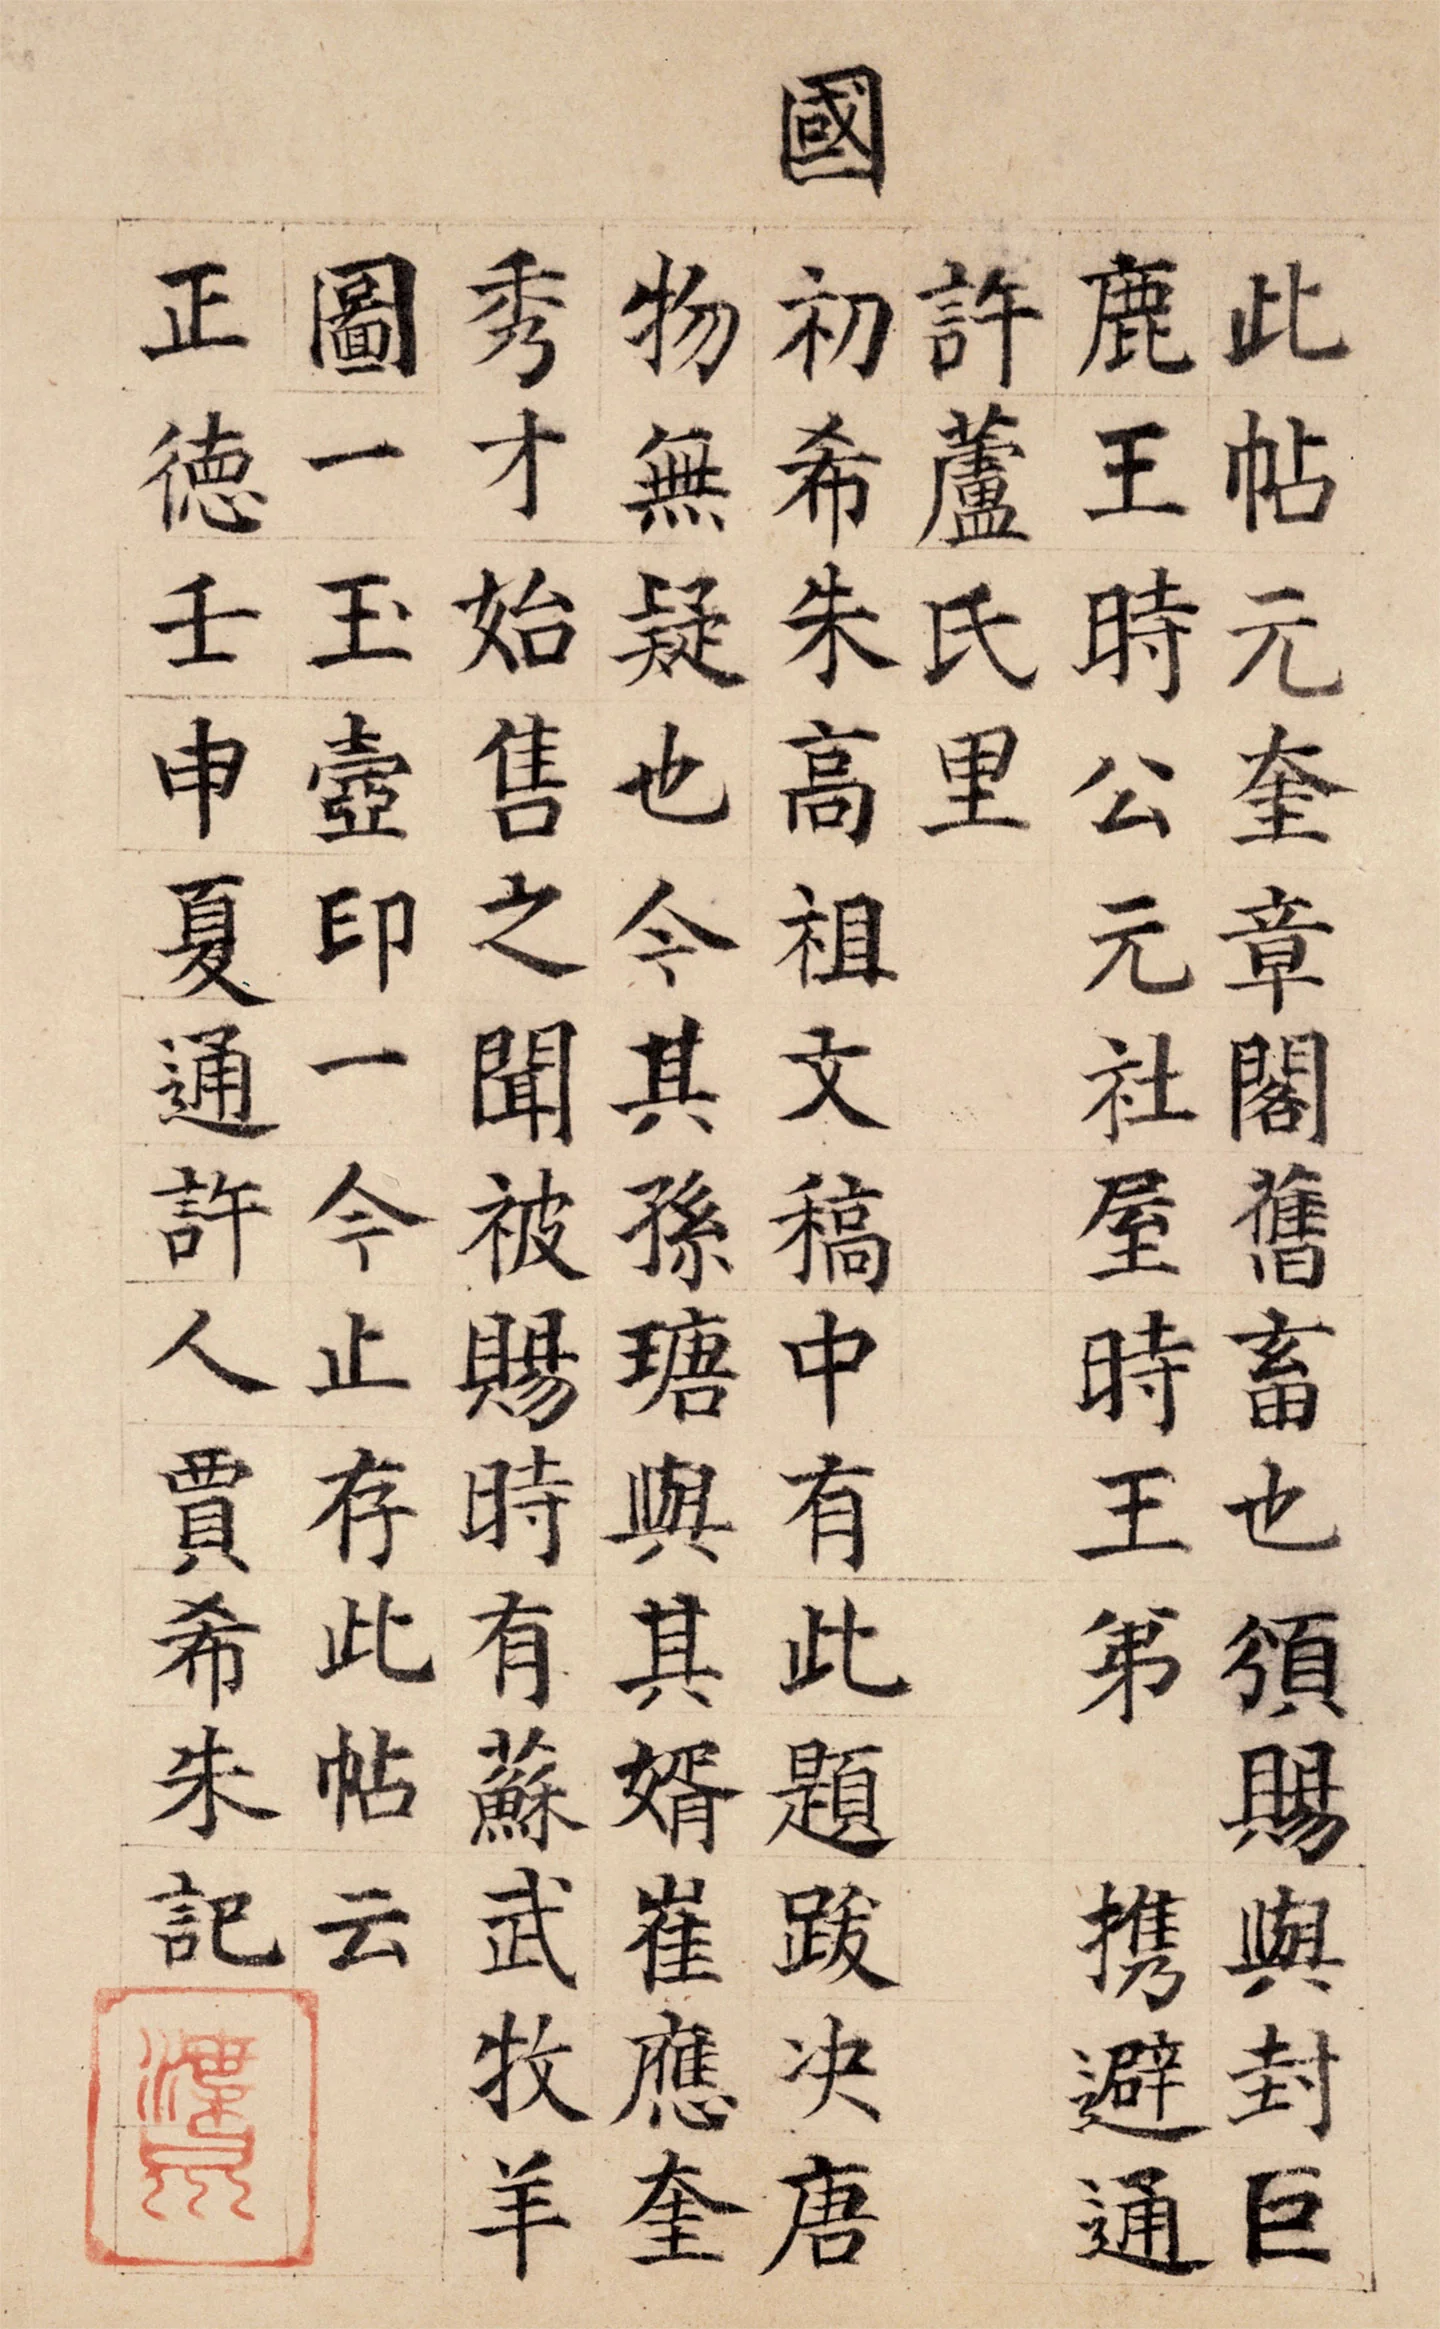 此帖元奎章閣舊畜也頒賜與封巨
鹿王時公元社屋時王弟 携避通
許蘆氏里
國
初希朱高祖文稿中有此題跋決唐
物無疑也今其孫瑭與其婿崔應奎
秀才始售之聞被賜時有蘇武牧羊
圖一玉壺印一今止存此帖云
正德壬申夏通許人賈希朱記